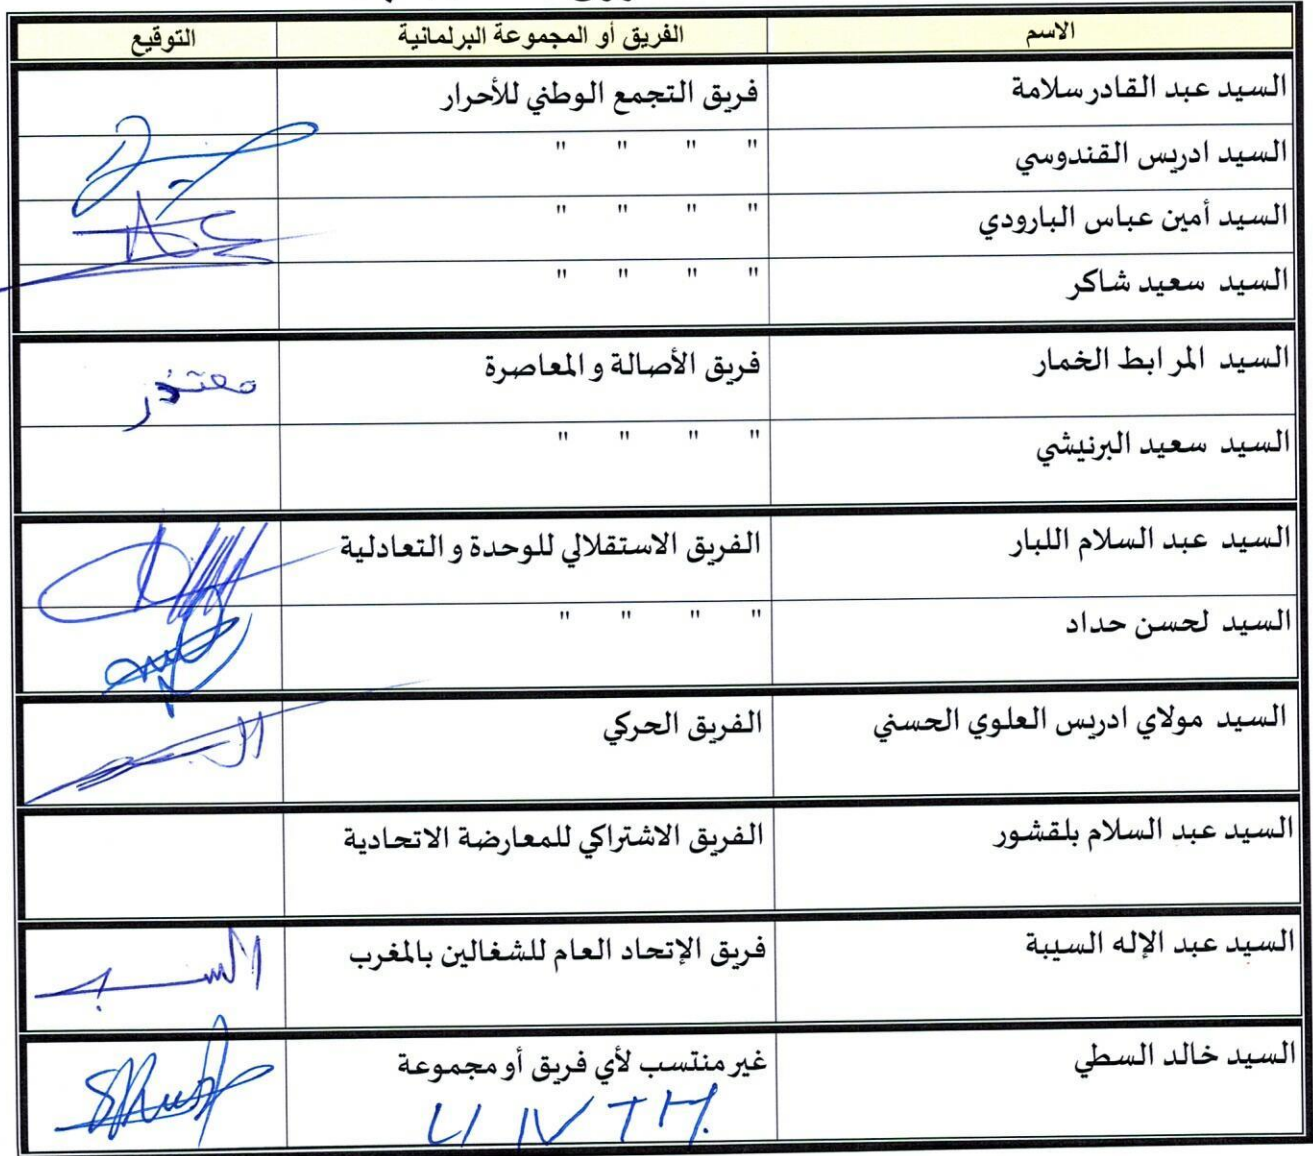 الاسم الفريق أو المجموعة البرلمانية التوقيع
السيد عبد القادر سلامة فريق التجمع الوطني للأحرار
السيد ادريس القندوسي " " " "
السيد أمين عباس البارودي " " " "
السيد سعيد شاكر " " " "
السيد المرابط الخمار فريق الأصالة والمعاصرة معتذر
السيد سعيد البرنيشي " " " "
السيد عبد السلام اللبار الفريق الاستقلالي للوحدة والتعادلية
السيد لحسن حداد " " " "
السيد مولاي ادريس العلوي الحسني الفريق الحركي
السيد عبد السلام بلقشور الفريق الاشتراكي للمعارضة الاتحادية
السيد عبد الإله السيبة فريق الإتحاد العام للشغالين بالمغرب
السيد خالد السطي غير منتسب لأي فريق أو مجموعة